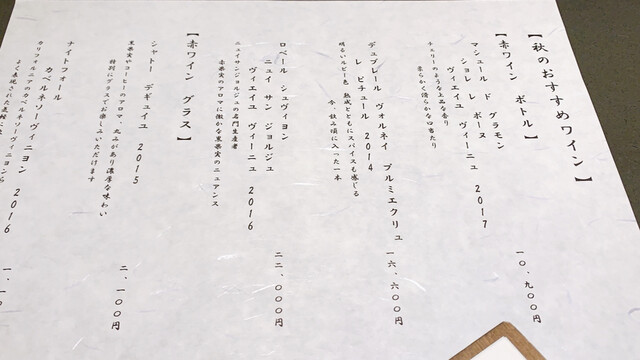 【秋のおすすめワイン】
【赤ワイン ボトル】
マシュール ド グラモン
ショレ レ ボーヌ
ヴィエイユ ヴィーニュ 2017
チェリーのような上品な香り
柔らかく滑らかな口当たり
一〇、九〇〇円
デュブレール ヴォルネイ プルミエクリュ
レ ピチュール 2014
明るいルビー色 熟成とともにスパイスも感じる
今、飲み頃に入った一本
一六、六〇〇円
ロベール シュヴィヨン
ニュイ サン ジョルジュ
ヴィエイユ ヴィーニュ 2016
ニュイサンジョルジュの名門生産者
赤果実のアロマに微かな黒果実のニュアンス
二二、〇〇〇円
【赤ワイン グラス】
シャトー デギュイユ 2015
黒果実やコーヒーのアロマ・丸みがあり濃厚な味わい
特別にグラスでお楽しみいただけます
二、一〇〇円
ナイトフォール
カベルネソーヴィニヨン 2016
カリフォルニアのカベルネソーヴィニヨンら
よく表現された
一、一〇